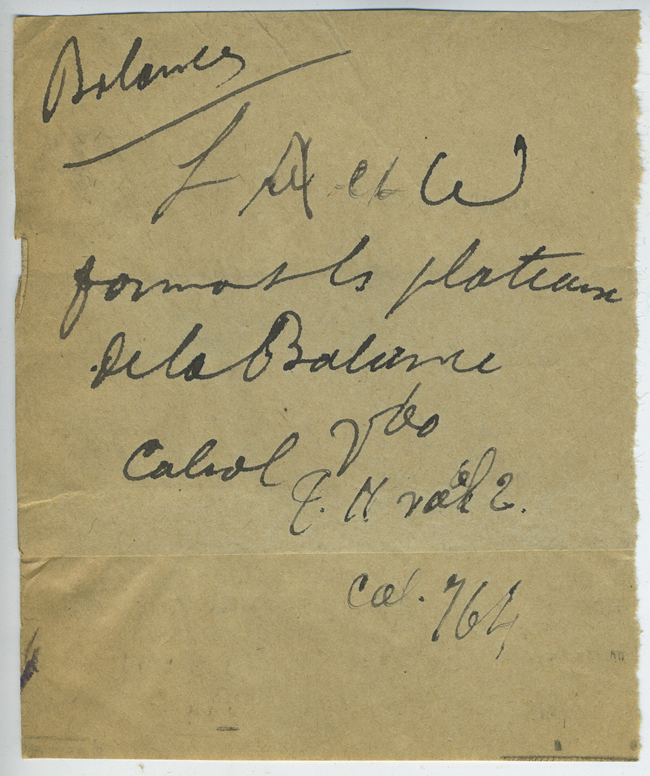 Balance
L A et W
formant ls plateaux
De la Balance
Cabrol
T. II vol 2.
col. 764